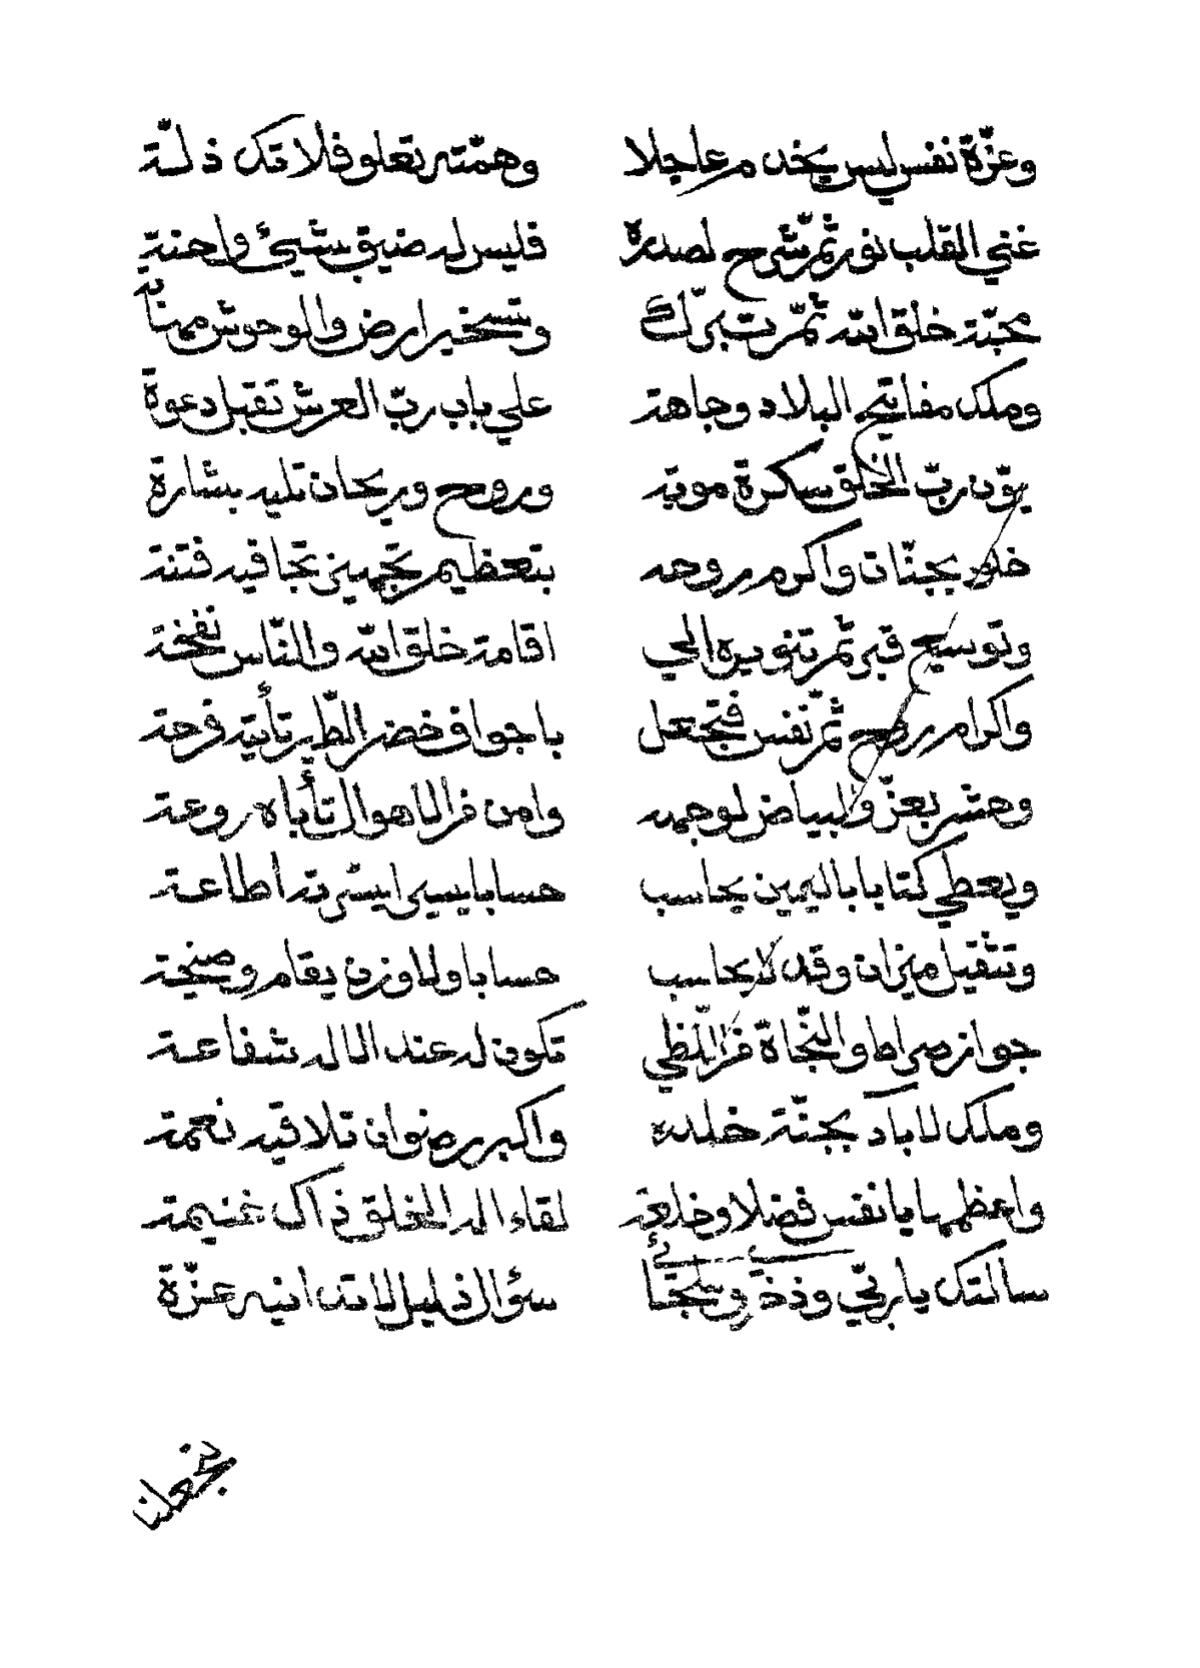 وعزّة نفس ليس يخدم عاجلا وهمّته تعلو فلا تك ذلّة
غني القلب نور ثمّ شرح لصدره فليس له ضيق بشيئ واحنة
محبّة خلق الله ثمّ تبرّك وتسخير ارض والوحوش مهابة
وملك مفاتيح البلاد وجاهة علي باب ربّ العرش تقبل دعوة
يهّون ربّ الخلق سكرة موته وروح وريحان تليه بشارة
خلود بجنّات واكرم روحه بتعظيم تجهيز تجافيه فتنة
وتوسيع قبر ثمّ تنويره الحي اقامة خلق الله والنّاس نفخة
واكرام روح ثمّ نفس فتجعل باجواف خضر الطّير تأتيه فرحة
وحشر بعزّ والبياض لوجهه وامن من الاهوال تأباه روعة
ويعطي كتابا باليمين يحاسب حسابا يسيرا يسّرته اطاعة
وتثقيل ميزان وقد لا يحاسب حسابا ولا وزن يقام وصنجة
جواز صراط والنّجاة من اللّظي تكون له عند الاله شفاعة
وملك لاباد بجنّة خلده واكبر رضوان تلاقيه نعمة
واعظمها يا نفس فضلا وخلعة لقاء اله الخلق ذاك غنيمة
سالتك يا ربّي وذخري وملجئا سؤال ذليل لا تدانيه عزّة